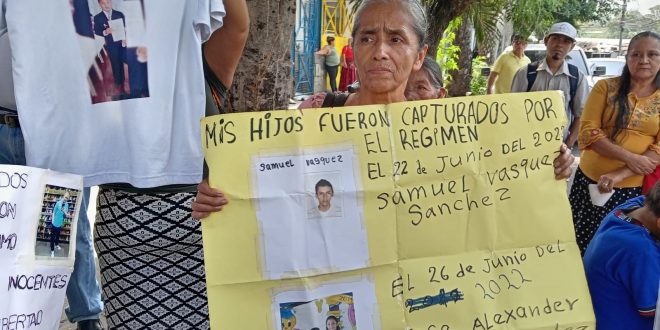 MIS HIJOS FUERON CAPTURADOS POR
EL REGIMEN
EL 22 de JUNIO DEL
Samuel Vasquez
Samuel Vasquez
Sanchez
EL 26 de Junio del
2022
Alexander
DOS
INOCENTES
LIBERTAD